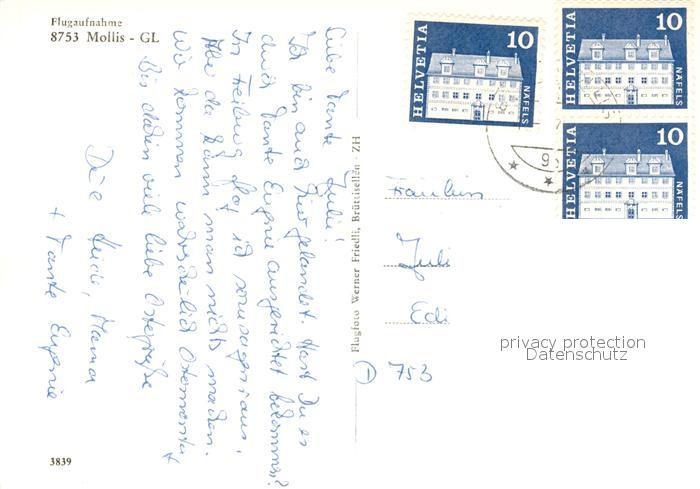 Flugaufnahme
8753 Mollis - GL
Liebe Tante Julie!
Ich bin auch hier gelandet. Hast Du es
durch Tante Eugenie ausgerichtet bekommen?
In Freiburg flog ich sozusagen raus,
Aber da kann man nichts machen.
Wir kommen wahrscheinlich Ostermontag
Bis dahin viele liebe Ostergrüße
Deine Heidi, Mama
+ Tante Eugenie
3839
Flugfoto Werner Friedli, Brüttisellen - ZH
HELVETIA 10 NÄFELS
HELVETIA 10 NÄFELS
HELVETIA 10 NÄFELS
Fräulein
Juli
Edi
753
privacy protection
Datenschutz